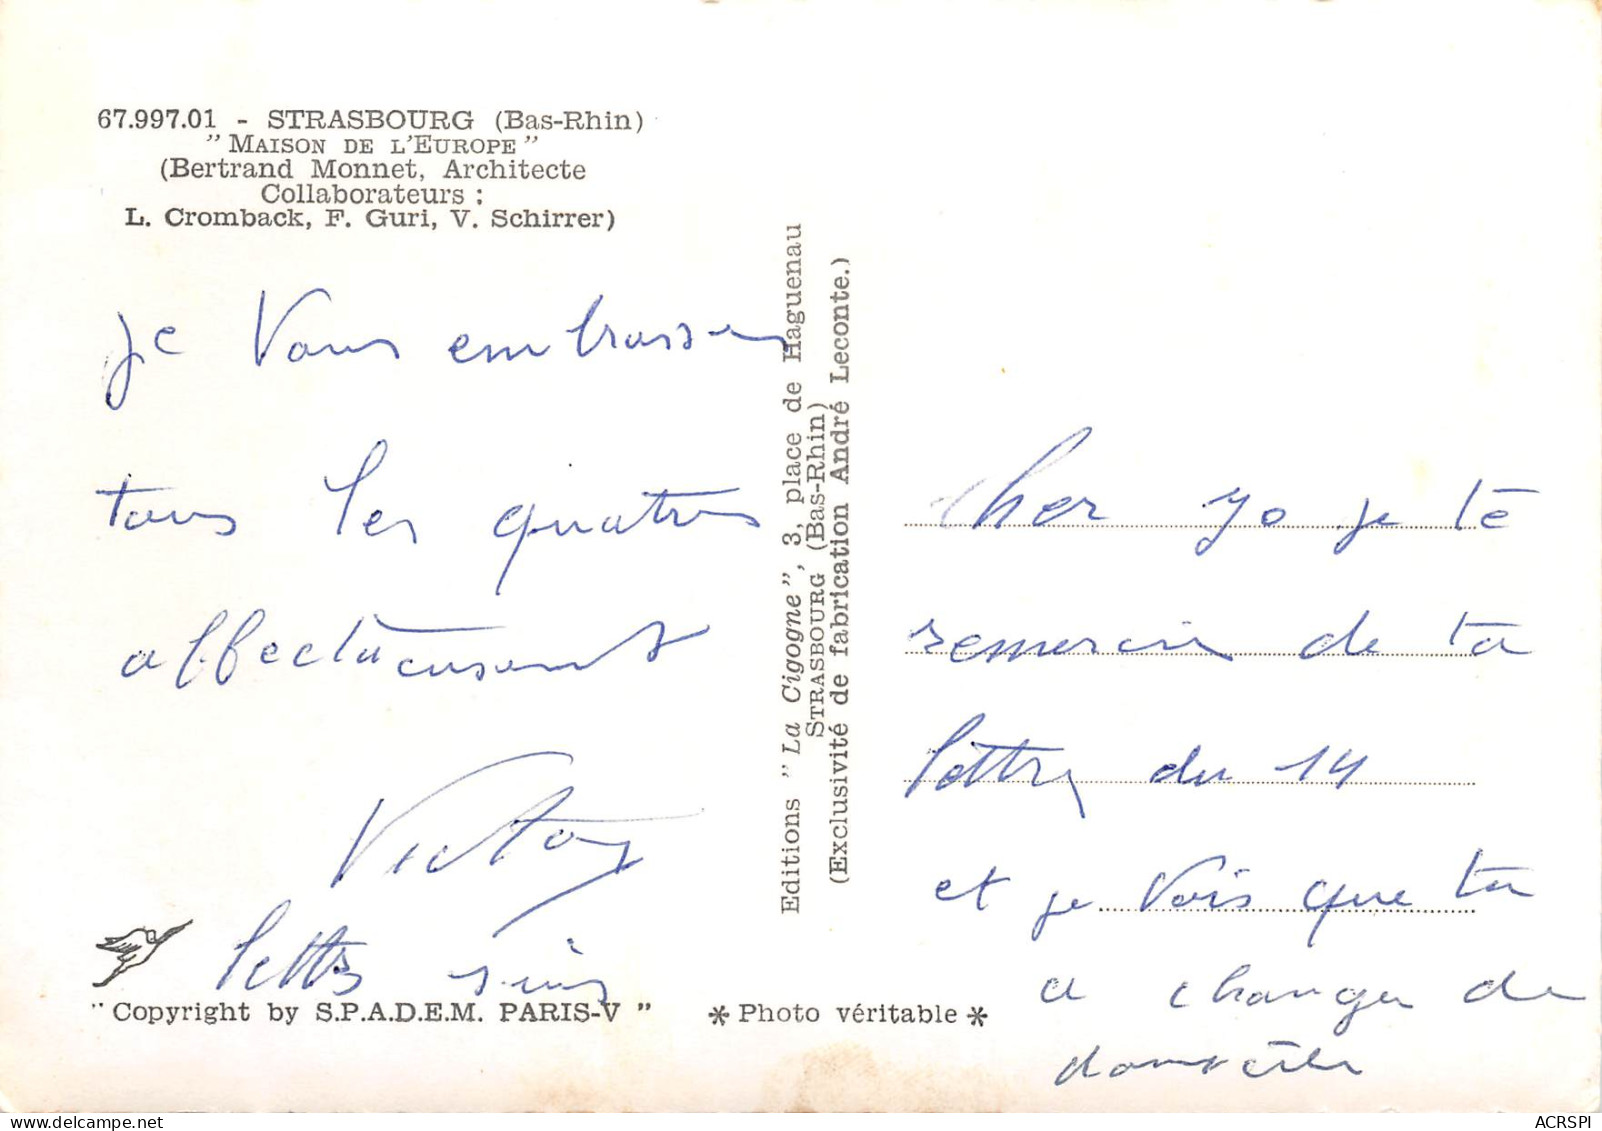 67.997.01 - STRASBOURG (Bas-Rhin)
" MAISON DE L'EUROPE "
(Bertrand Monnet, Architecte
Collaborateurs :
L. Cromback, F. Guri, V. Schirrer)
je vous embrasse
tous les quatres
affectueusement
Victor
lettre suis
" Copyright by S.P.A.D.E.M. PARIS-V "
✻ Photo véritable ✻
Editions " La Cigogne ", 3, place de Haguenau
STRASBOURG (Bas-Rhin)
(Exclusivité de fabrication André Leconte.)
Cher Yo je te
remercie de ta
lettre du 14
et je vois que tu
a changer de
domicile
ACRSPI